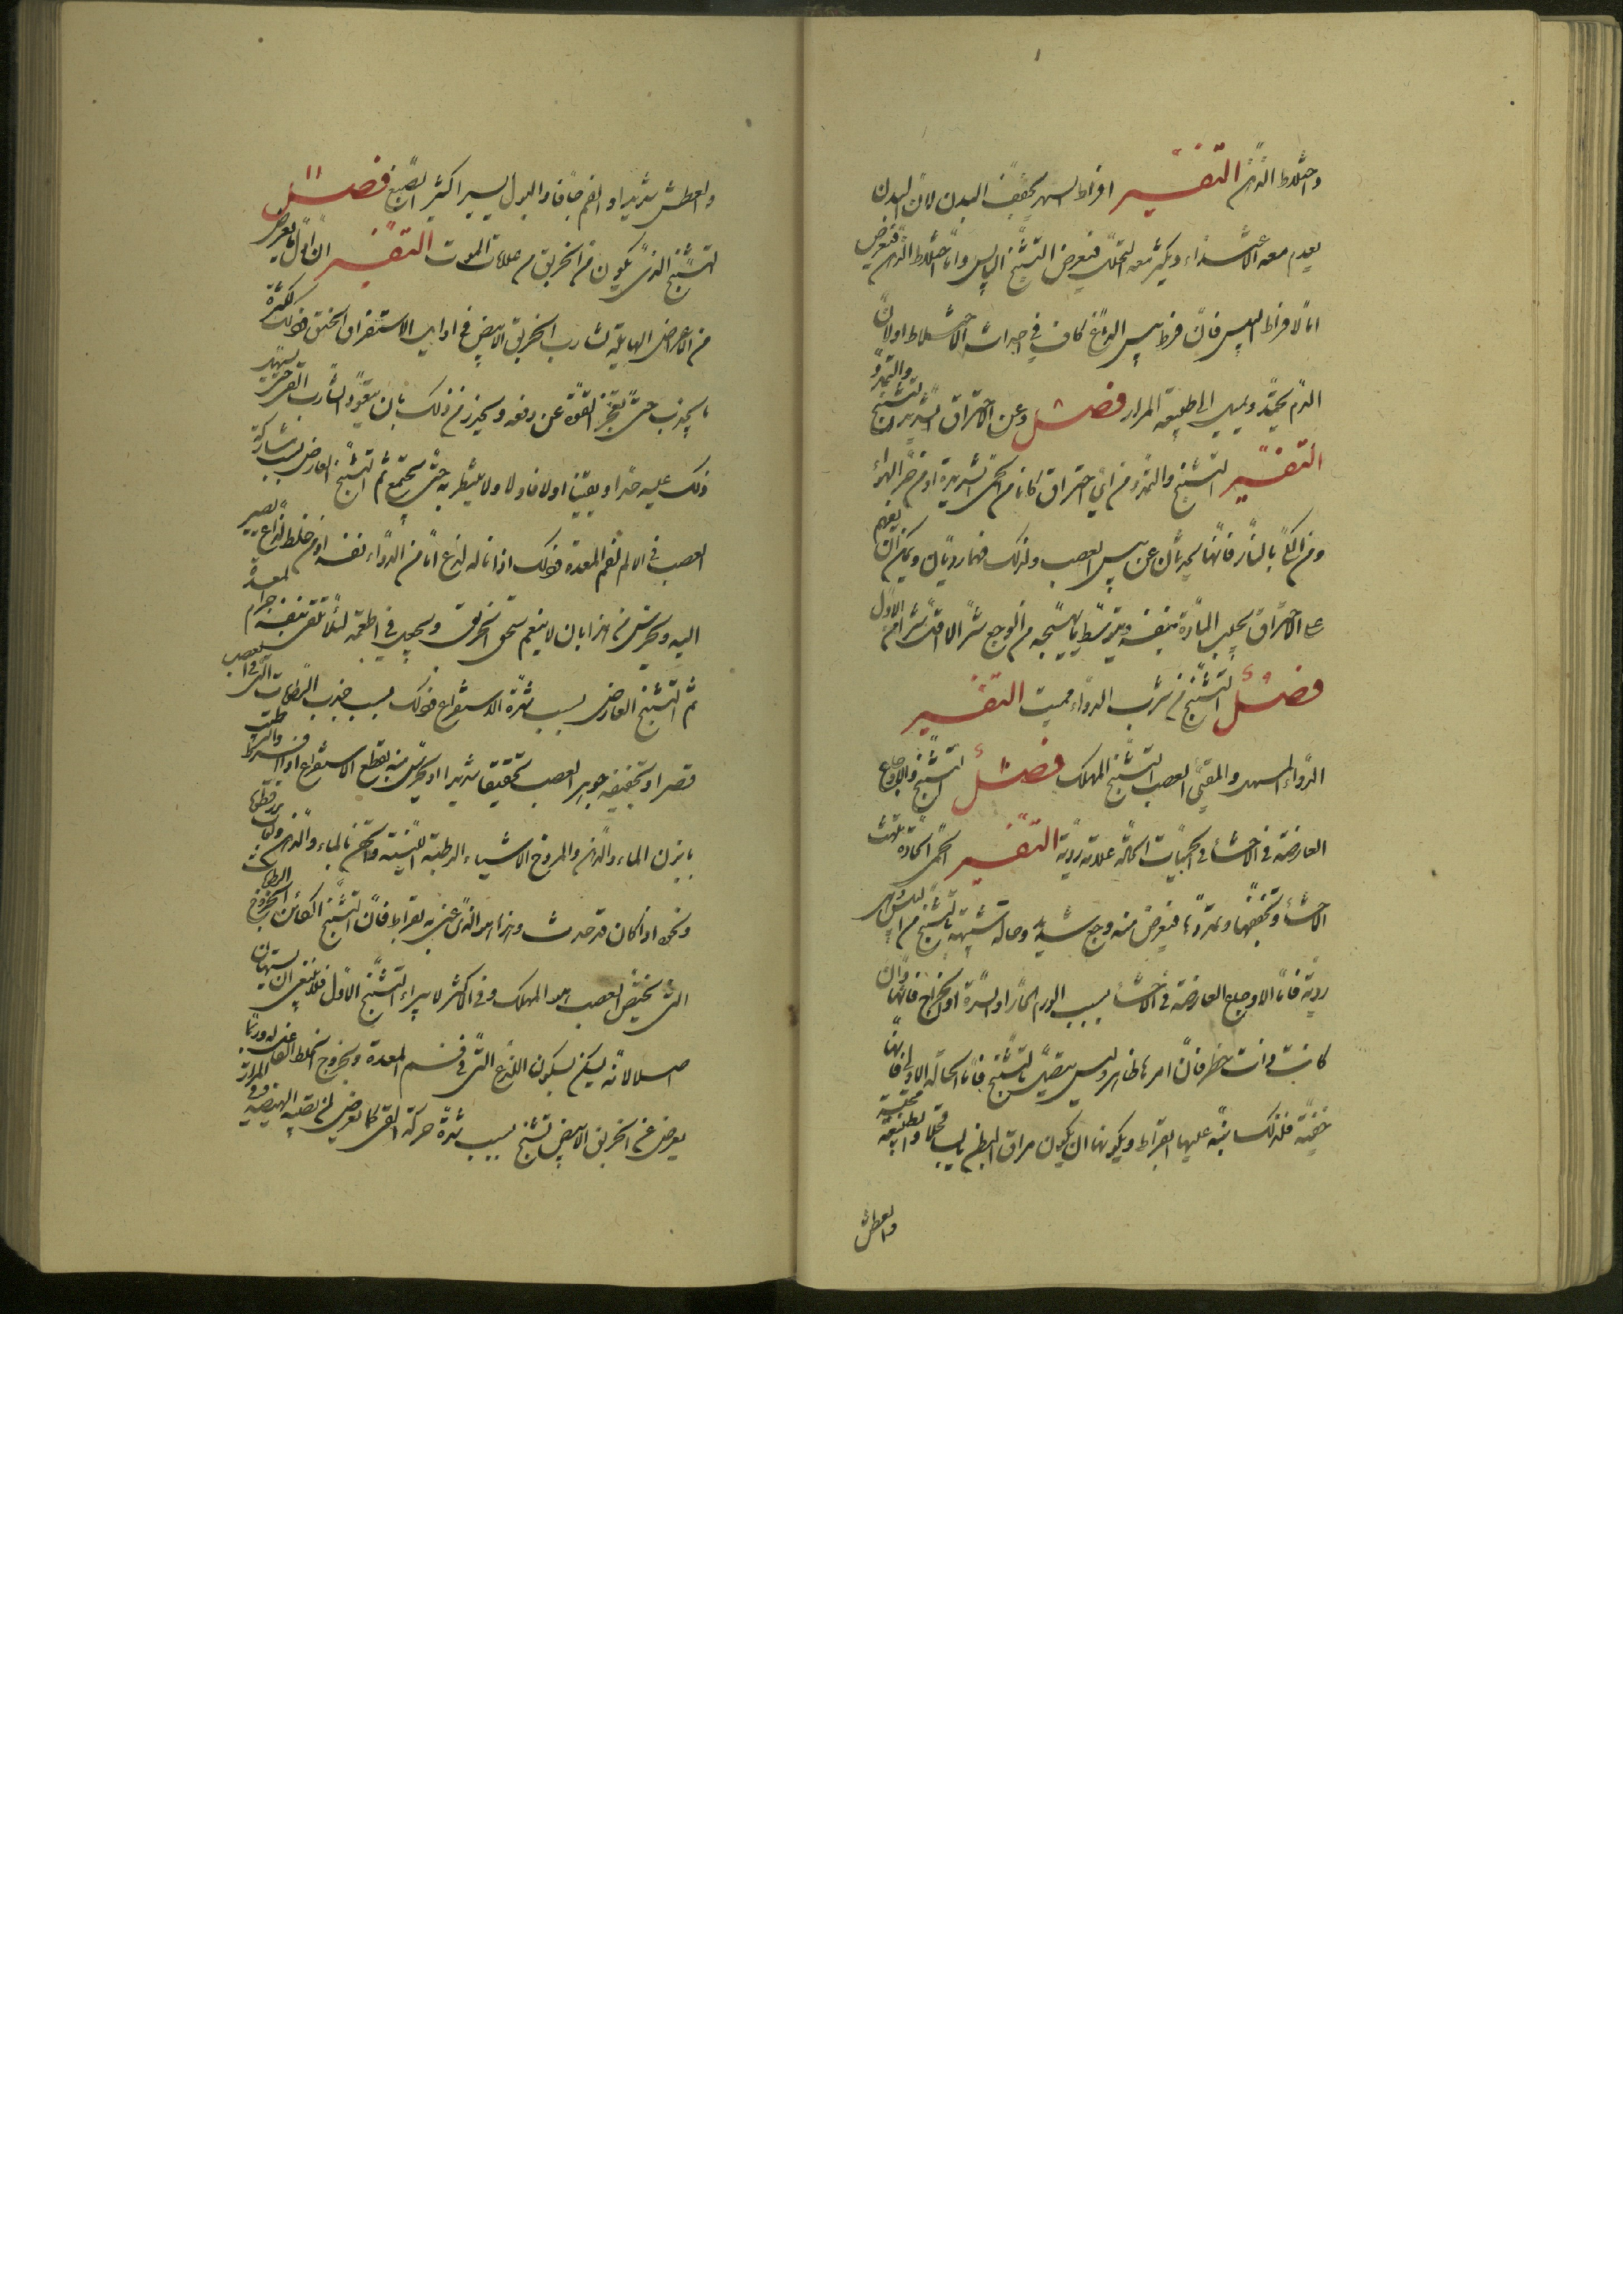 واختلاط الذهن التفسير افراط السهر يجفف البدن لان البدن
يعدم معه الاغتذاء ويكثر معه التحلل فيعرض التشنج اليابس واما اختلاط الذهن فيعرض
اما لافراط اليبس فان فرط يبس الدماغ كاف في احداث الاختلاط او لان
الدم يحتد ويميل الى طبيعة المرار فصل وعن الاحتراق الشديد التشنج والتمدد
التفسير التشنج والتمدد من اي احتراق كانا من الحمى الشديدة او من حر الهواء
ومن الكي بالنار فانهما يحدثان عن يبس العصب ولذلك فهما رديان ويمكن ان يفهم
على احتراق يجلب المادة بنفسه وبتوسط ما يهيجه من الوجع شر الاقتشرار من الاول
فصل التشنج من شرب الدواء مميت التفسير
الدواء المسهل والمقيى العصب التشنج المهلك فصل التشنج والاوجاع
العارضة في الاحشاء في الحميات الحادة علامة ردية التفسير الحمى الحادة
الاحشاء وتجففها وتمددها فيعرض منه وجع شديد وحالة شبيهة بالتشنج من اليبس وهي
ردية فاما الاوجاع العارضة في الاحشاء بسبب الورم الحار او السدة او الخراج فانها وان
كانت ذات خطر فان امرها ظاهر وليس يتصل بالتشنج فاما الحالة الاولى فانها
خفية فلذلك نبه عليها ابقراط ويكونها ان يكون مراق البطن يابسا قحلا والطبيعة محتبسة
والعطش
والعطش شديدا والفم جافا والبول يسيرا كثير الصبغ فصل
التشنج الذي يكون من الخربق من علامات الموت التفسير ان اول ما يعرض
من الاعراض الهايلة لشارب الخربق الابيض في اوايل الاستفراغ الخنق وذلك لكثرة
ما يجذب حتى تعجز القوة عن دفعه ويحترز من ذلك بان يتعود الشارب القى حتى يسهل
ذلك عليه جدا ويتقيا اولا فاولا ولا ينتظر به حتى يجتمع ثم التشنج العارض بسبب مشاركة
العصب في الالم لفم المعدة وذلك اذا ناله لذع اما من الدواء نفسه او من خلط لذاع يصير
اليه ويحترس من هذا بان لا ينعم سحق الخربق ويجعل في اطعمة لئلا تلقى بنفسه جرم المعدة
ثم التشنج العارض بسبب شدة الاستفراغ وذلك بسبب جذب الرطوبات التي في العصب
قصرا وتجفيفه جوهر العصب تجفيفا شديدا ويحترس منه بقطع الاستفراغ اذا افرط والترطيب
بابزن الماء والدهن والمروخ الاشياء الرطبة اللينة والحقن بالماء والدهن
ونحوه اذا كان قد حدث وهذا هو الذي عنى به بقراط فان التشنج الكائن بخروج الرطوبات
التي تخص العصب هو المهلك وفي الاكثر لا يبراء التشنج الاول فلا ينبغي ان يستهان به
اصلا لانه يسكن بسكون اللذع الذي في فم المعدة وبخروج الخلط الفاعل له وربما
يعرض عن الخربق الابيض تشنج بسبب شدة حركة القى كما يعرض لمن تصيبه الهيضة